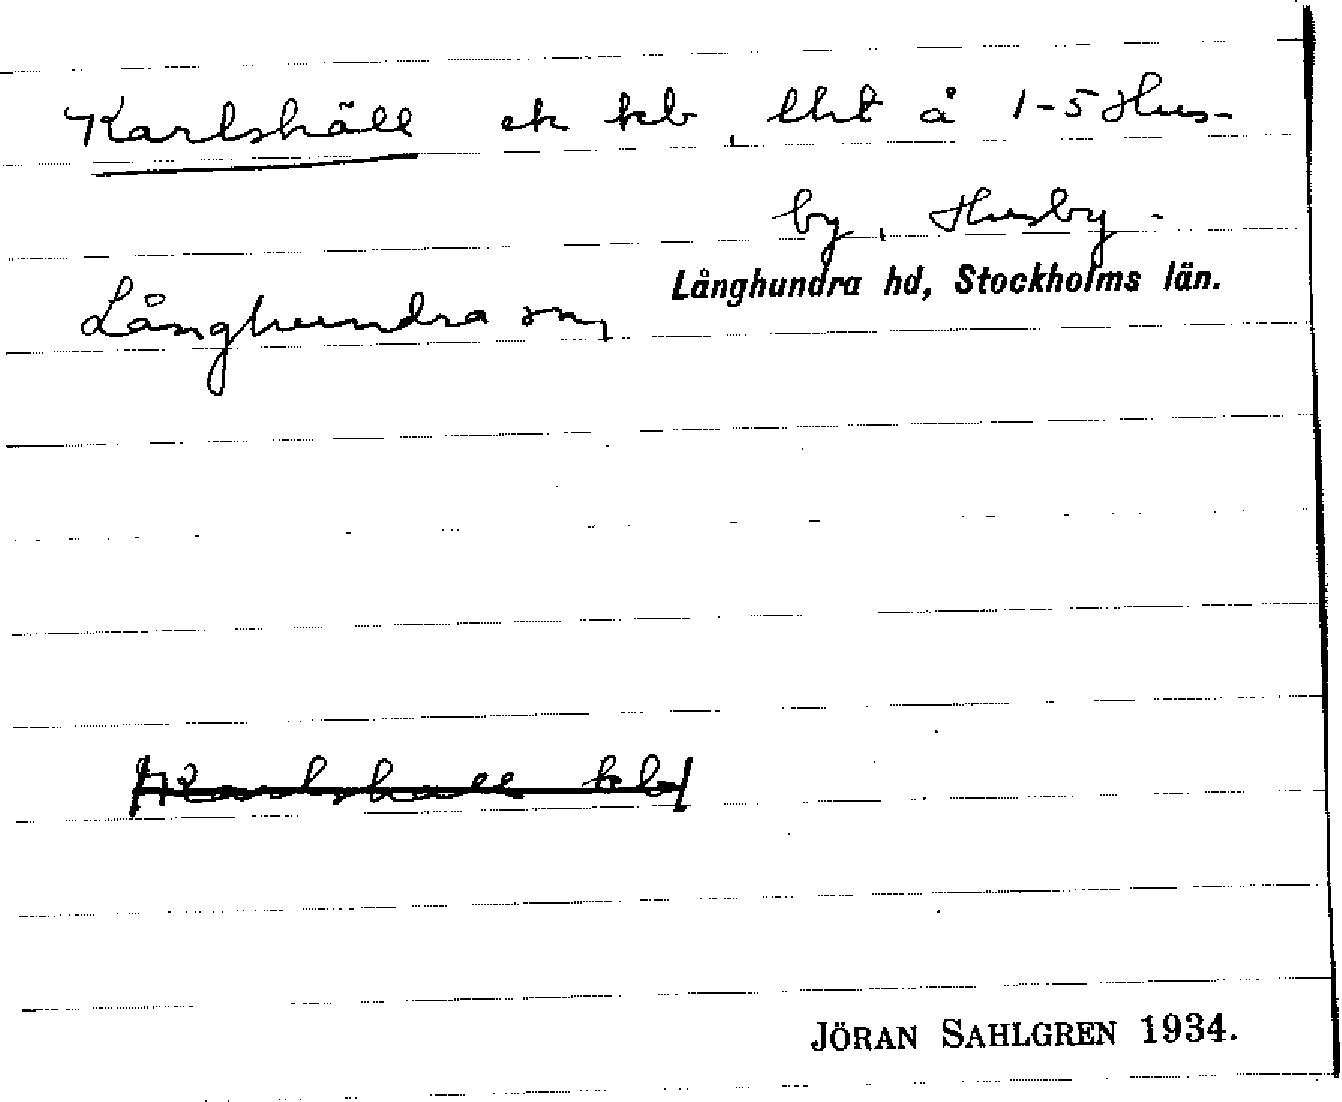 Karlshäll ek kb, lht å 1-5 Hus-
by, Husby-
Långhundra hd, Stockholms län.
Långhundra sn,
Karlshall kb
JÖRAN SAHLGREN 1934.